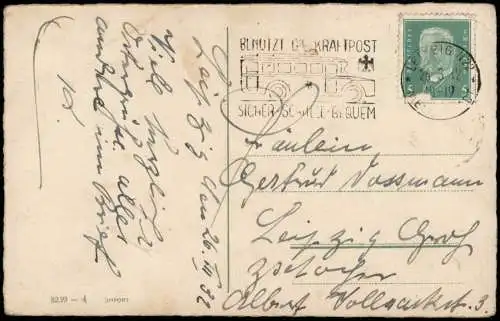 BENUTZT DIE KRAFTPOST
SICHER-SCHNELL-BEQUEM
LEIPZIG
Leipzig den 26. III 32
Viele herzliche
Ostergrüße alles
andere im Brief
Fräulein
Gertrud Vossmann
Leipzig Groß
zschocher
Albert Vollsackstr. 3.
8239 - 4
IMPORT